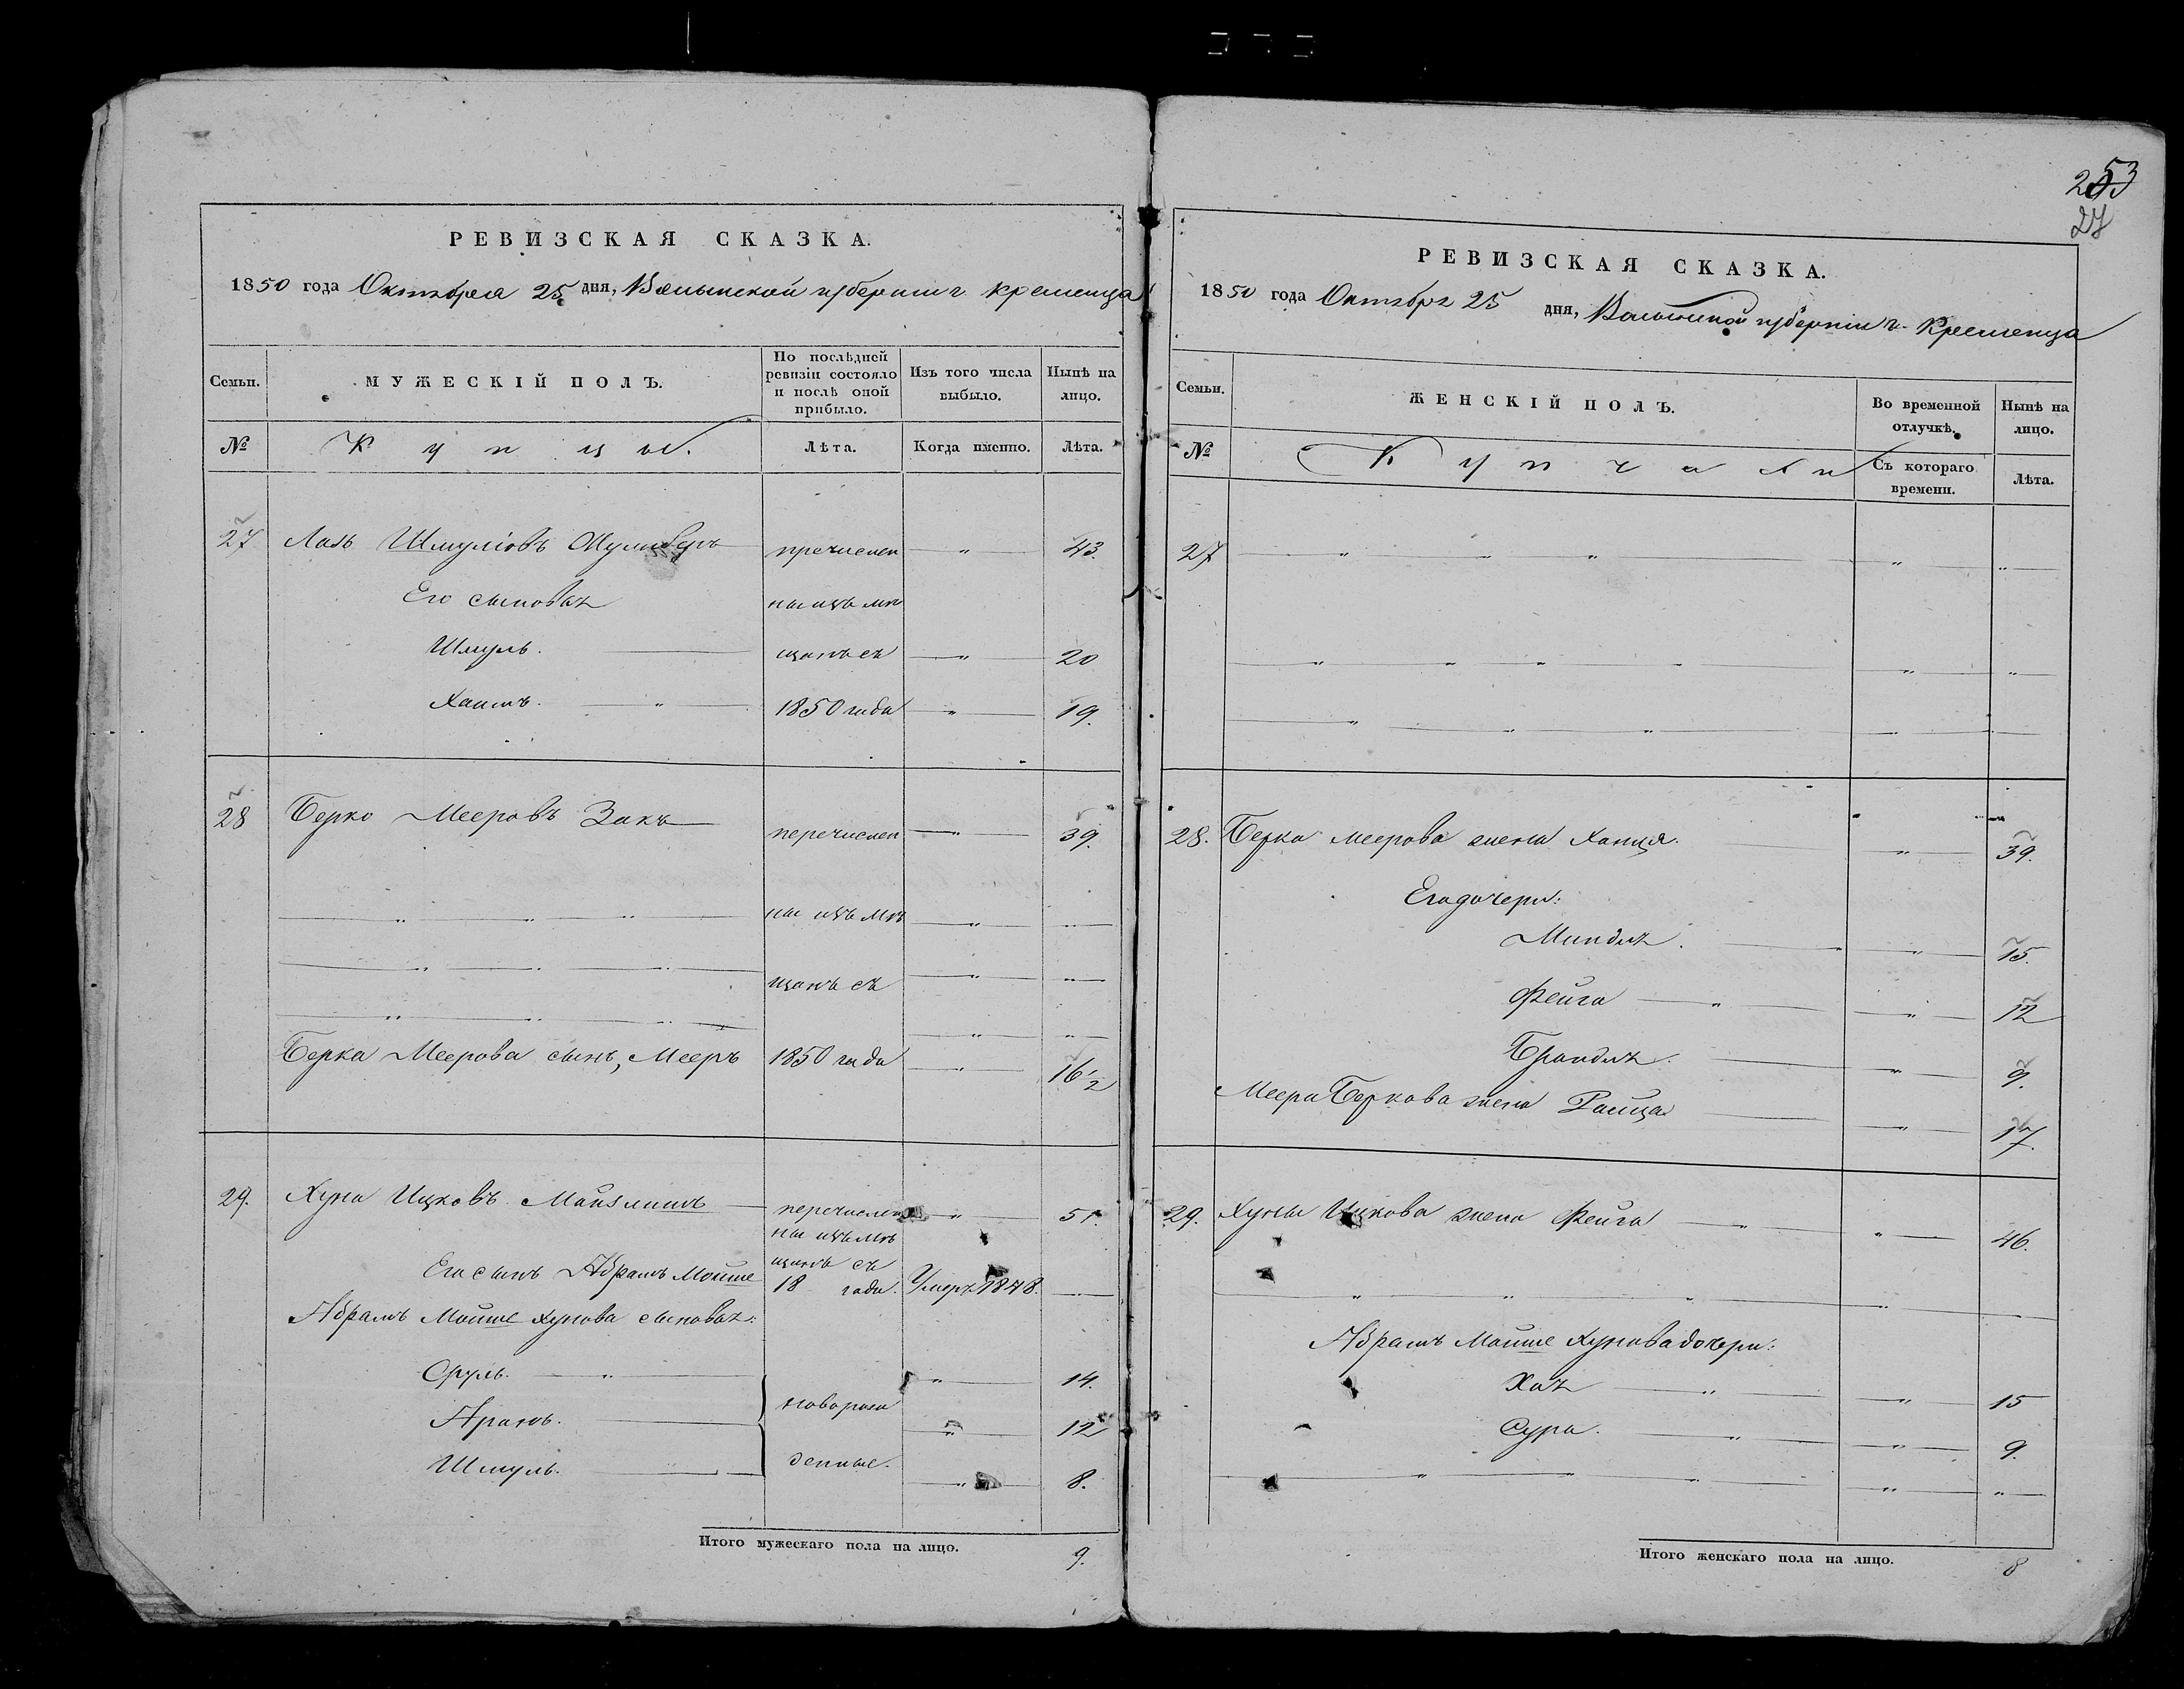 253
27
РЕВИЗСКАЯ СКАЗКА.
1850 года Октября 25 дня, Волынской губернии г. Кременца
Семьи. МУЖЕСКІЙ ПОЛЪ. По послѣдней ревизіи состояло и послѣ оной прибыло. Изъ того числа выбыло. Нынѣ на лицо.
№ Купцы. Лѣта. Когда именно. Лѣта.
27 Шмуліовъ пречислен " 43.
Его сыновья ны изъ мѣ
Шмуль. щанъ съ " 20
Хаимъ. " 1850 года " 19.
28 Берко Мееровъ Закъ перечислен " 39.
" " " ны изъ мѣ " "
" " " щанъ съ " "
" " " " "
Берка Меерова сынъ, Мееръ 1850 года " 16 1/2
29. Хуна Ицковъ Майзлишъ перечислен " 51.
ны изъ мѣ
Его сынъ Абрамъ Мойше щанъ съ 18 года. Умеръ 1848.
Абрамъ Мойше Хунова сыновья:
Сруль. " " 14.
Аранъ. новорож " 12
Шмуль. денные. " 8.
Итого мужескаго пола на лицо. 9.
РЕВИЗСКАЯ СКАЗКА.
1850 года Октября 25 дня, Волынской губерніи г. Кременца
Семьи. ЖЕНСКІЙ ПОЛЪ. Во временной отлучкѣ. Нынѣ на лицо.
№ Купчихи Съ котораго времени. Лѣта.
27 " " " " "
" " " " " "
" " " "
28. Берка Меерова жена Ханця. " 39.
Его дочери:
Миндля. " 15.
Фейга " " 12
Брандля. " 9.
Меера Беркова жена Раица " 17.
29. Хуны Ицкова жена Фейга " " 46.
" " " "
Абрамъ Мойше Хунова дочери:
Хая " " 15
Сура. " " 9.
" " " " "
Итого женскаго пола на лицо. 8